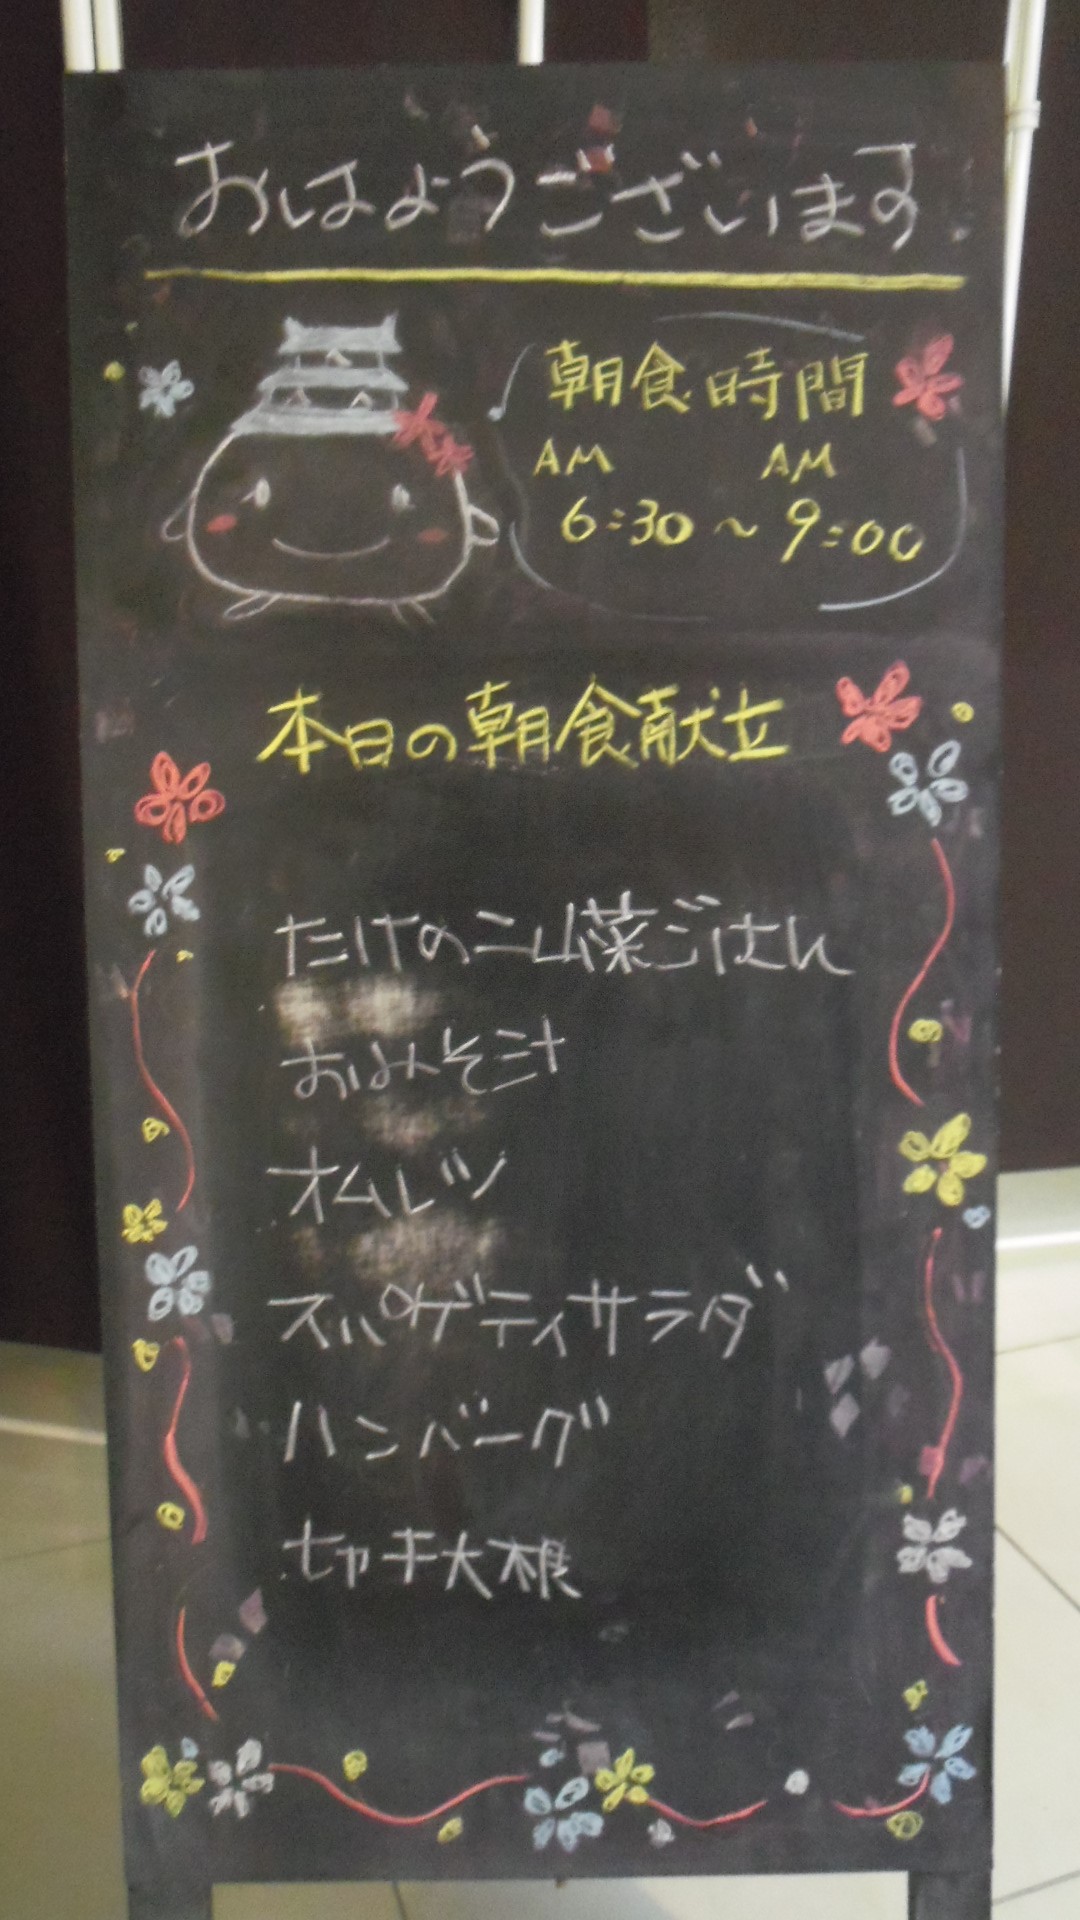 おはようございます
朝食時間
AM AM
6:30～9:00
本日の朝食献立
たけのこ山菜ごはん
おみそ汁
オムレツ
スパゲティサラダ
ハンバーグ
切干大根